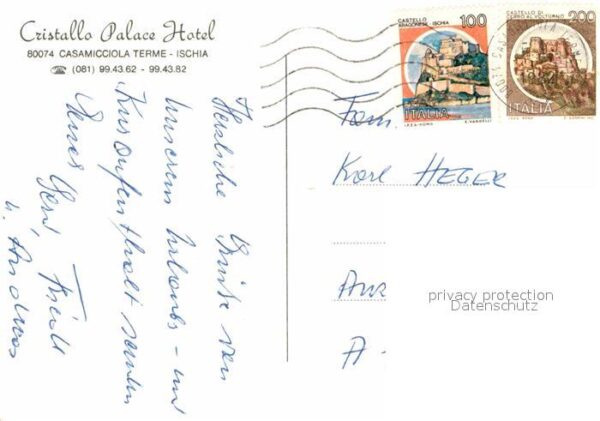 Cristallo Palace Hotel
80074 CASAMICCIOLA TERME - ISCHIA
☎ (081) 99.43.62 - 99.43.82
CASTELLO
ARAGONESE - ISCHIA
100
ITALIA
I.P.Z.S. - ROMA
CASTELLO DI
CERRO AL VOLTURNO
200
ITALIA
Herzliche Grüße von
unserem Urlaubs - und
Kuraufenthalt senden
u. Andreas
Fam.
Karl HEGER
A
privacy protection
Datenschutz